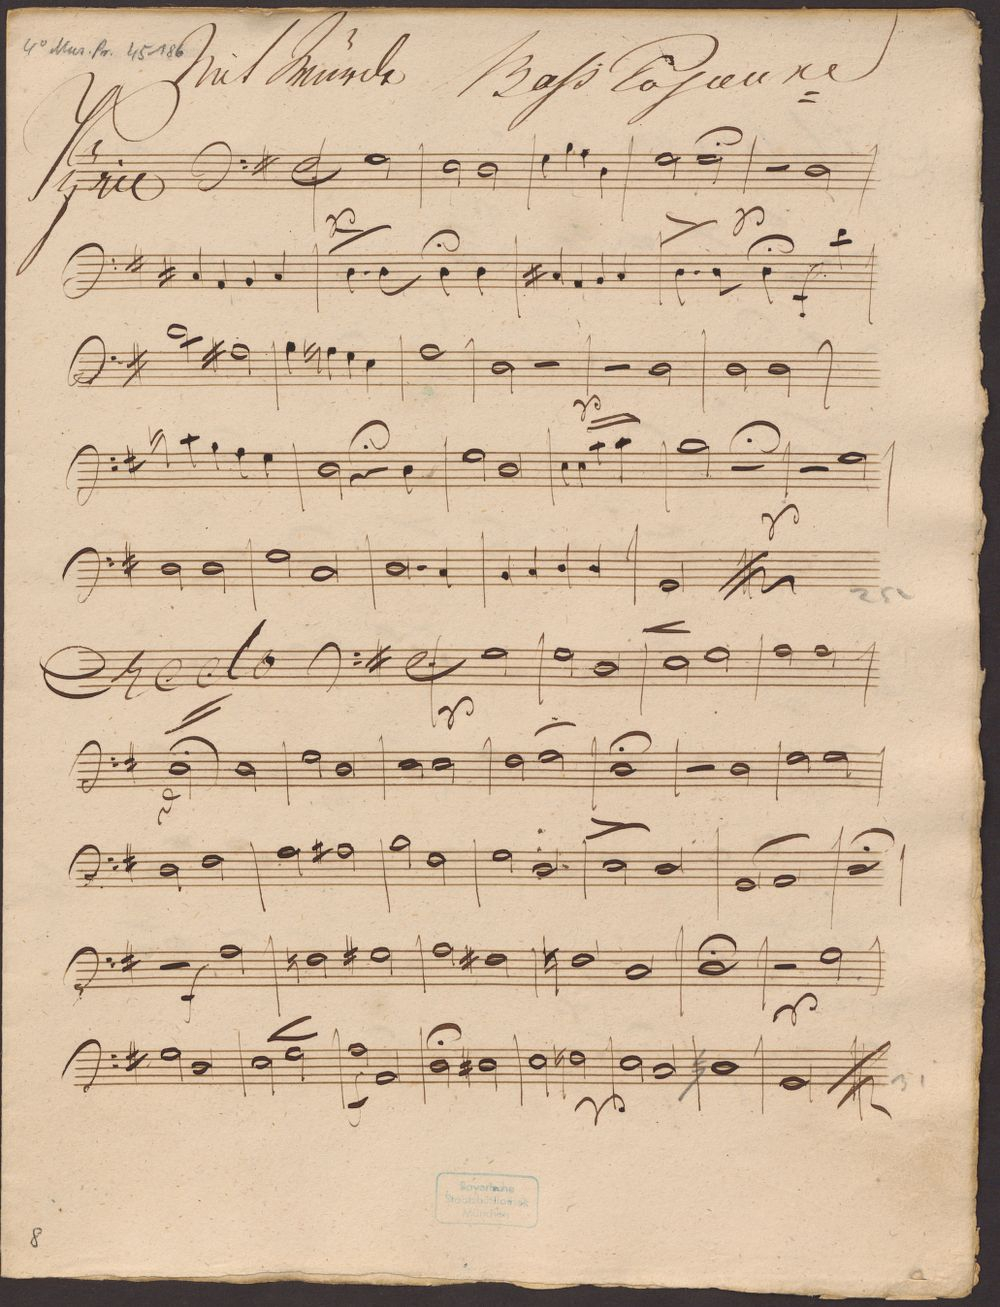 4° Mus. Pr. 45186
Mit Würde Bass Posaune
Kyrie
Credo
Bayerische
Staatsbibliothek
München
8